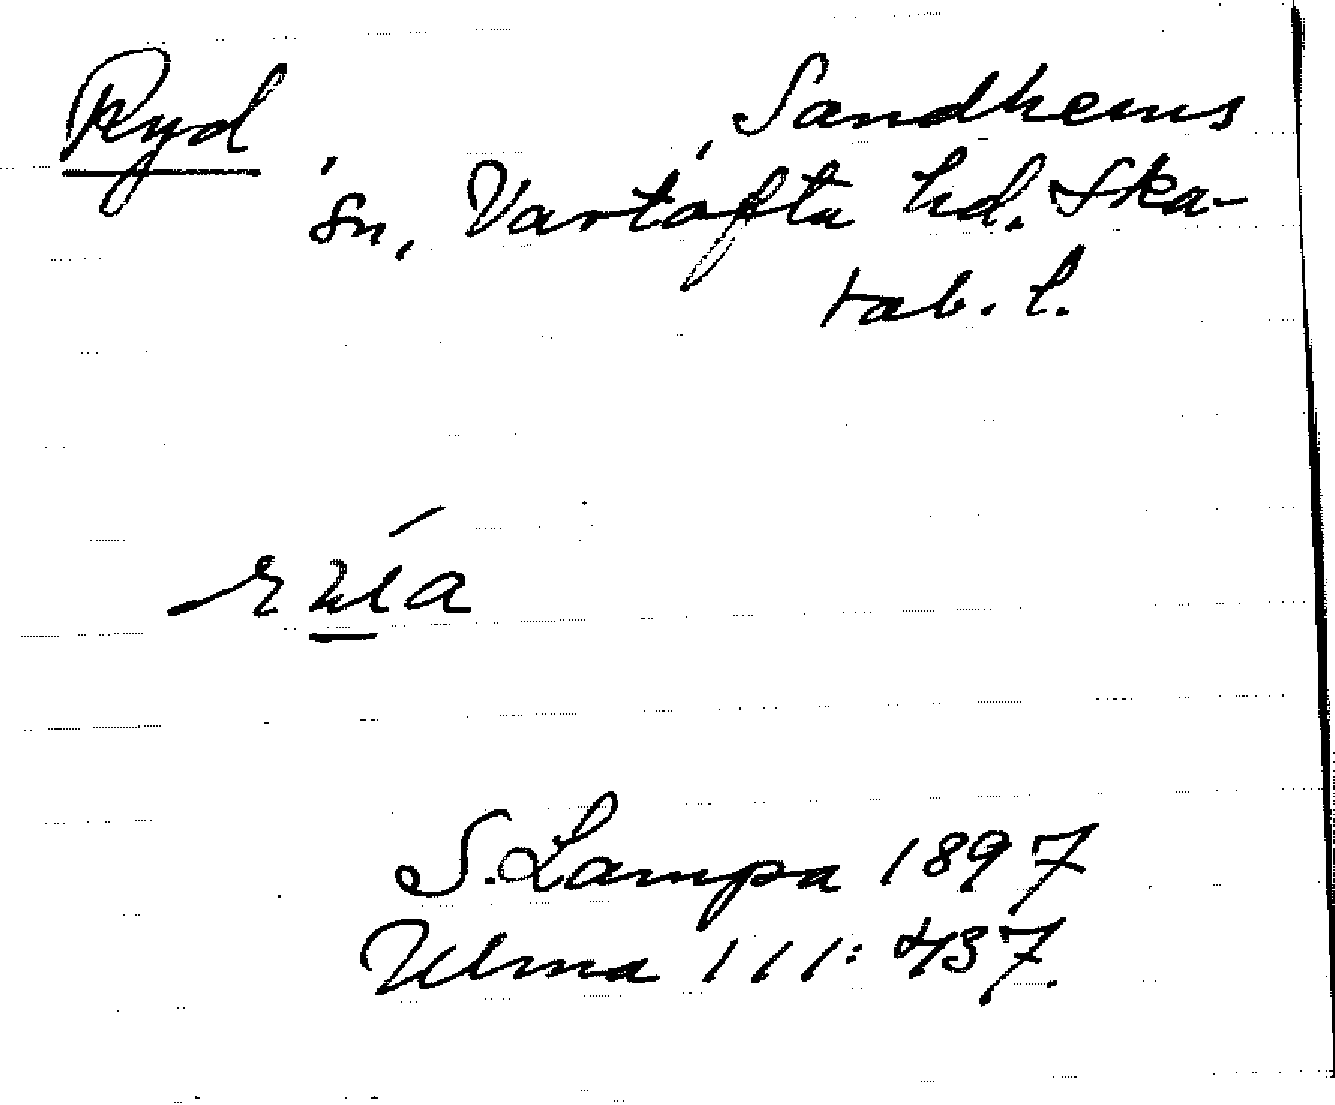 Ryd, Sandhems
sn, Vartofta hd. Ska-
rab. l.
S. Lampa 1897
Ulma 111: 437.